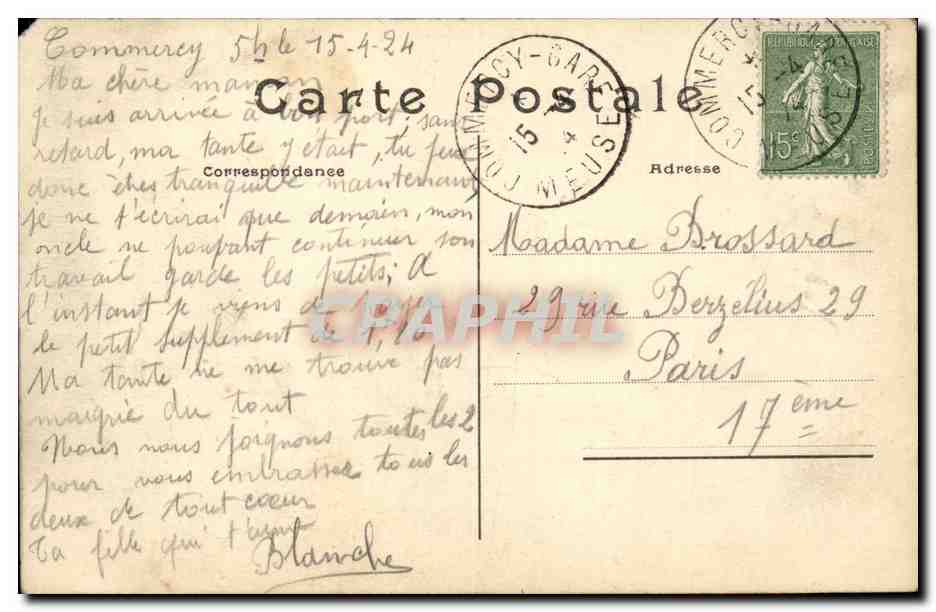 Commercy 5h le 15-4-24
Ma chère maman
Carte Postale
Je suis arrivée à bon port, sans
retard, ma tante y était, tu peux
Correspondance
donc êtres tranquille maintenant
je ne t'écrirai que demain, mon
oncle ne pouvant continuer son
travail garde les petits; A
l'instant je viens de payer
le petit supplément de
Ma tante ne me trouve pas
maigrie du tout
Nous nous joignons toutes les 2
pour vous embrasser tous les
deux de tout coeur
Ta fille qui t'aime
Blanche
COMMERCY-GARE
15 4
MEUSE
COMMERCY-GARE
15 -4
MEUSE
REPUBLIQUE FRANÇAISE
15c
POSTES
Adresse
Madame Brossard
29 rue Berzélius 29
Paris
17ème
CPAPHIL